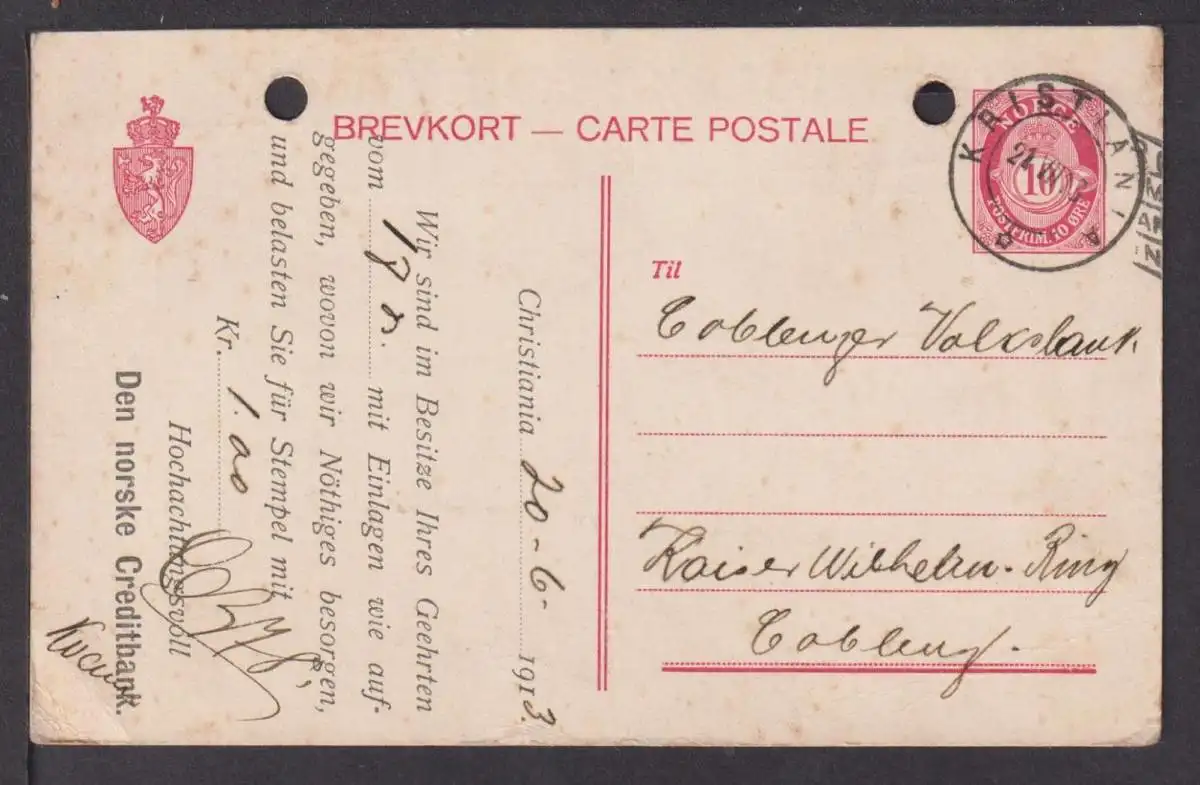 BREVKORT — CARTE POSTALE
NORGE
10
POSTFRIM. 10 ØRE
KRISTIANIA
Til
Coblenzer Volksbank
Kaiser Wilhelm-Ring
Coblenz.
Christiania 20-6- 1913.
Wir sind im Besitze Ihres Geehrten
vom mit Einlagen wie auf-
gegeben, wovon wir Nöthiges besorgen,
und belasten Sie für Stempel mit
Kr. 1.00
Hochachtungsvoll
Den norske Creditbank.